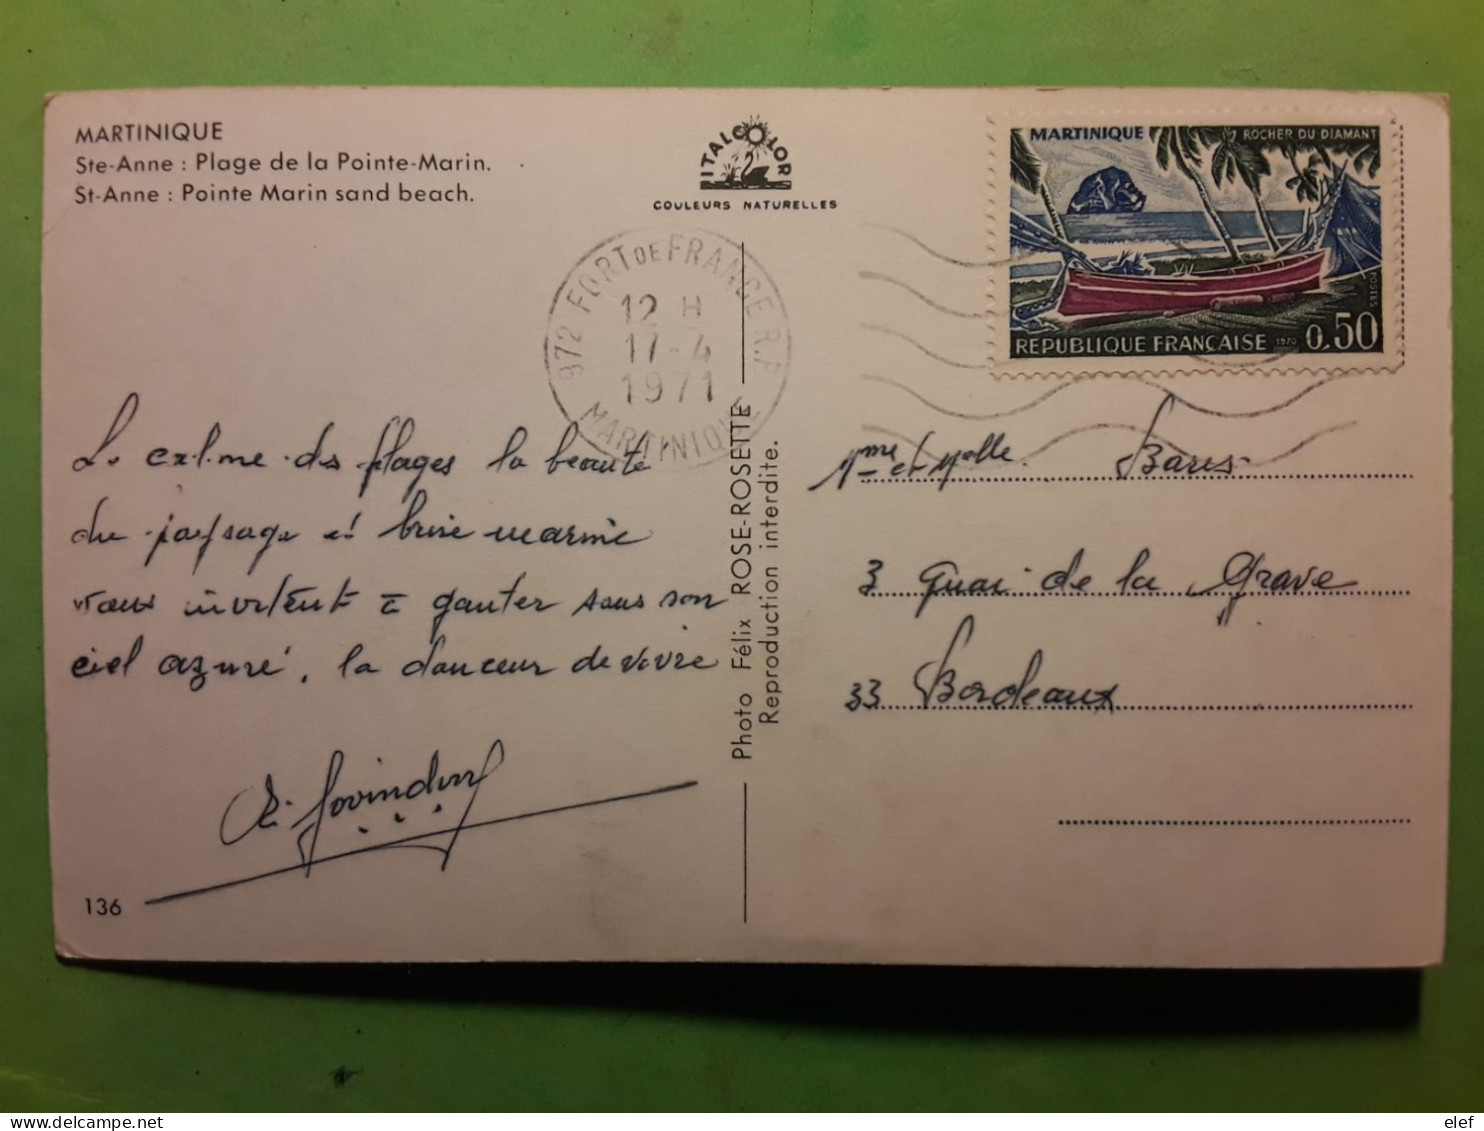 MARTINIQUE
Ste-Anne : Plage de la Pointe-Marin.
St-Anne : Pointe Marin sand beach.
ITALCOLOR
COULEURS NATURELLES
MARTINIQUE ROCHER DU DIAMANT
POSTES
REPUBLIQUE FRANÇAISE 1970 0,50
972 FORT DE FRANCE R.P.
12 H
17-4
1971
MARTINIQUE
Le calme des plages la beauté
du paysage et brise marine
vous invitent à gouter sous son
ciel azuré, la douceur de vivre
Mme et Melle Bares
3 Quai de la Grave
33 Bordeaux
Photo Félix ROSE-ROSETTE
Reproduction interdite.
136
elef